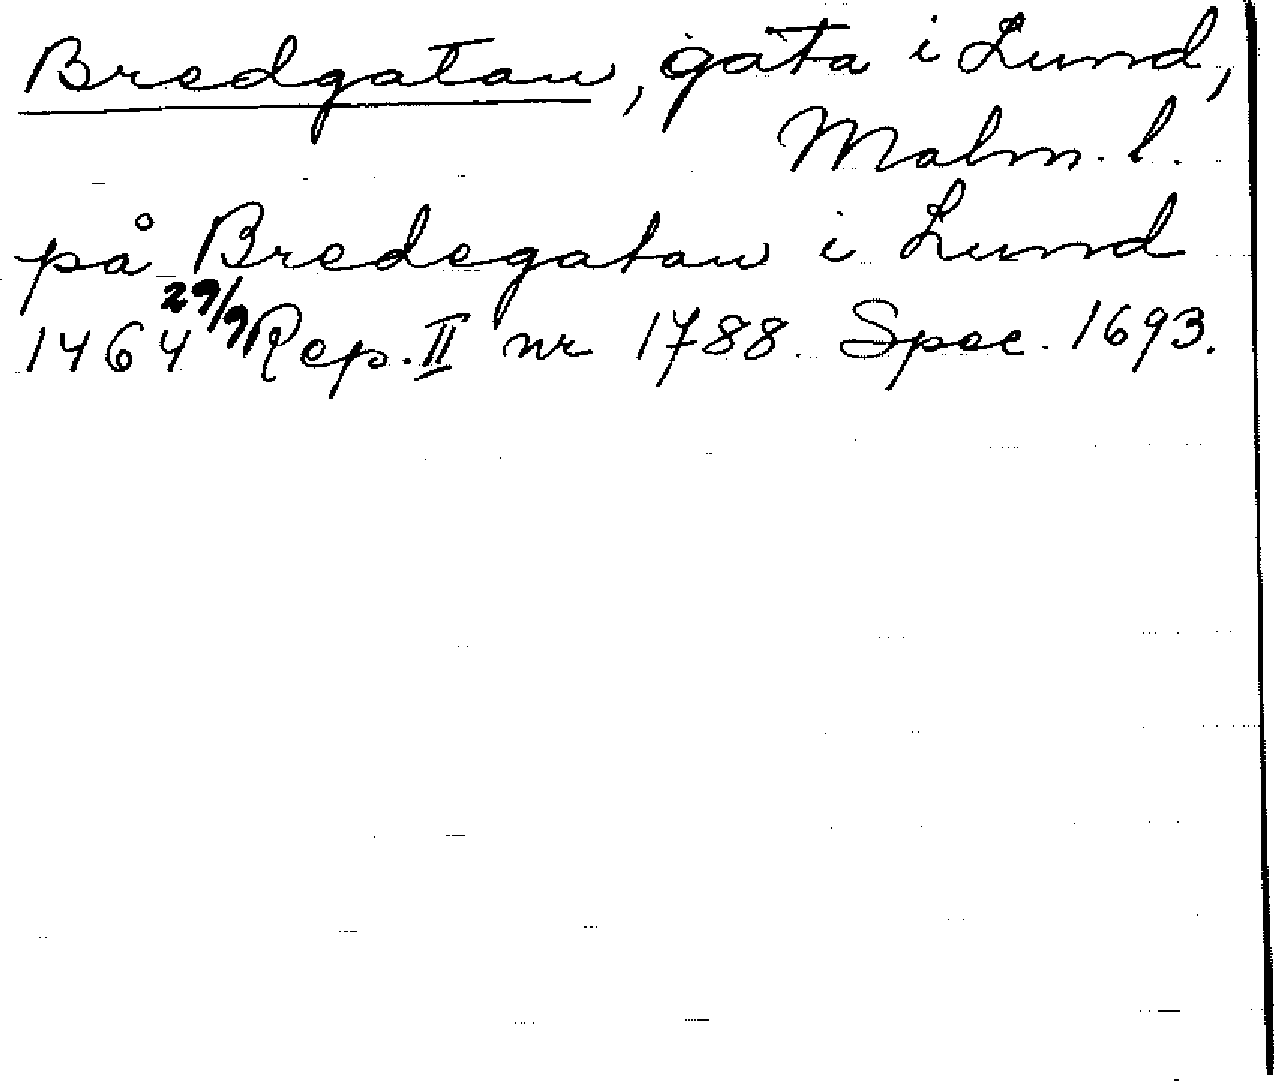 Bredgatan, gata i Lund,
Malm. l.
på Bredegatan i Lund
1464 29/9 Rep. II nr 1788. Spec. 1693.